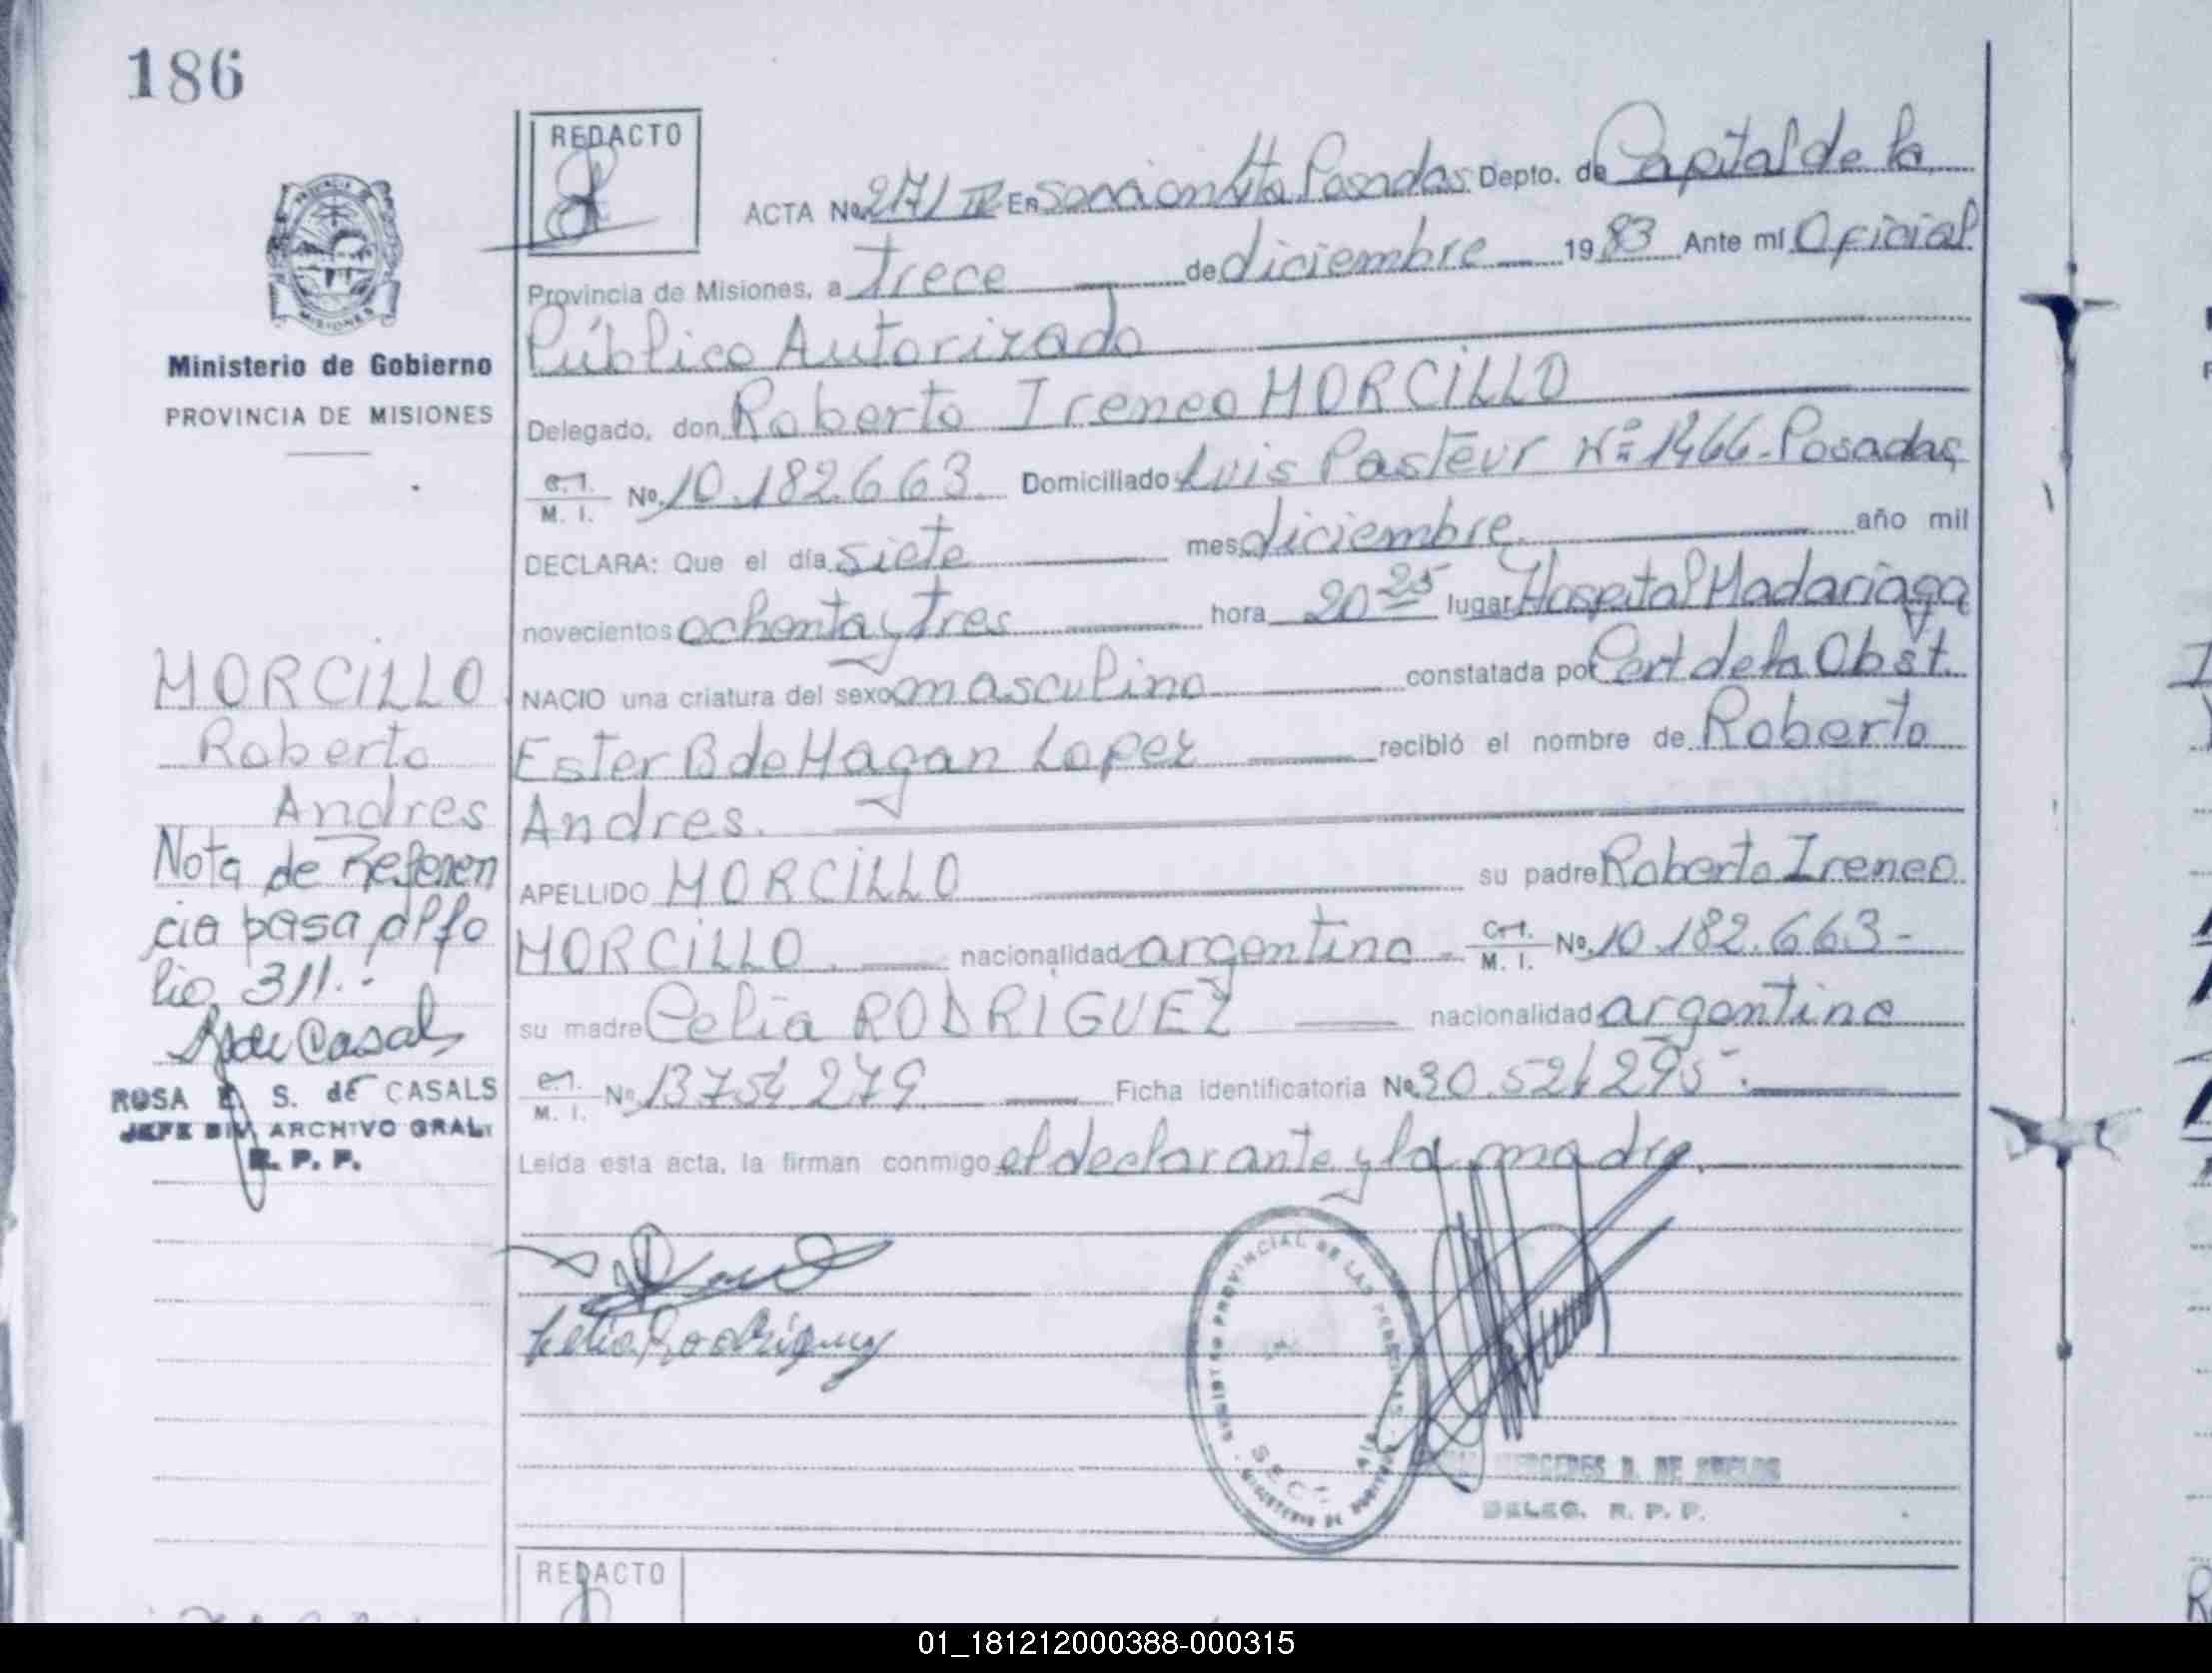 186
REDACTO
ACTA No. 271 IV En Sección 4ta Posadas Depto. de Capital de la
Provincia de Misiones, a Trece de diciembre 1983 Ante mí Oficial
Público Autorizado
Delegado, don Roberto Ireneo MORCILLO
C.I. M. I. No. 10.182.663 Domiciliado Luis Pasteur Nº 1466-Posadas
DECLARA: Que el día siete mes diciembre año mil
novecientos ochenta y tres hora 20 25 lugar Hospital Madariaga
NACIO una criatura del sexo masculino constatada por Cert de la Obst.
Ester B de Hagan Lopez recibió el nombre de Roberto
Andres.
APELLIDO MORCILLO su padre Roberto Ireneo
MORCILLO nacionalidad argentino - C.I. M. I. No. 10.182.663-
su madre Celia RODRIGUEZ nacionalidad argentina
C.I. M. I. No. 13754279 Ficha identificatoria No. 30.521295.
Leída esta acta, la firman conmigo el declarante y la madre.
Celia Rodriguez
REGISTRO PROVINCIAL DE LAS PERSONAS
SECC. 4ta
MERCEDES
DELEG. R. P. P.
PROVINCIA DE MISIONES
Ministerio de Gobierno
PROVINCIA DE MISIONES
MORCILLO
Roberto
Andres
Nota de Referen
cia pasa al fo
lio 311.-
S de Casals
ROSA E. S. de CASALS
JEFE DIV. ARCHIVO GRAL.
R. P. P.
REDACTO
01_181212000388-000315